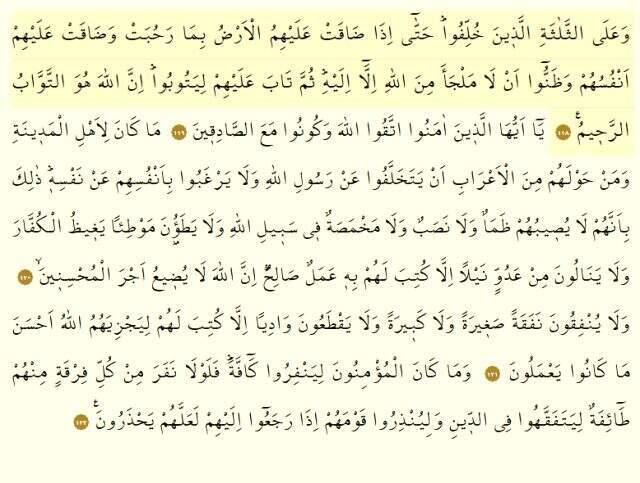 وَعَلَى الثَّلٰثَةِ الَّذ۪ينَ خُلِّفُواۜ حَتّٰٓى اِذَا ضَاقَتْ عَلَيْهِمُ الْاَرْضُ بِمَا رَحُبَتْ وَضَاقَتْ عَلَيْهِمْ
اَنْفُسُهُمْ وَظَنُّٓوا اَنْ لَا مَلْجَاَ مِنَ اللّٰهِ اِلَّٓا اِلَيْهِۜ ثُمَّ تَابَ عَلَيْهِمْ لِيَتُوبُواۜ اِنَّ اللّٰهَ هُوَ التَّوَّابُ
الرَّح۪يمُ۟ ﴿١١٨﴾ يَٓا اَيُّهَا الَّذ۪ينَ اٰمَنُوا اتَّقُوا اللّٰهَ وَكُونُوا مَعَ الصَّادِق۪ينَ ﴿١١٩﴾ مَا كَانَ لِاَهْلِ الْمَد۪ينَةِ
وَمَنْ حَوْلَهُمْ مِنَ الْاَعْرَابِ اَنْ يَتَخَلَّفُوا عَنْ رَسُولِ اللّٰهِ وَلَا يَرْغَبُوا بِاَنْفُسِهِمْ عَنْ نَفْسِه۪ۜ ذٰلِكَ
بِاَنَّهُمْ لَا يُص۪يبُهُمْ ظَمَاٌ وَلَا نَصَبٌ وَلَا مَخْمَصَةٌ ف۪ي سَب۪يلِ اللّٰهِ وَلَا يَطَؤُ۫نَ مَوْطِئًا يَغ۪يظُ الْكُفَّارَ
وَلَا يَنَالُونَ مِنْ عَدُوٍّ نَيْلًا اِلَّا كُتِبَ لَهُمْ بِه۪ عَمَلٌ صَالِحٌۜ اِنَّ اللّٰهَ لَا يُض۪يعُ اَجْرَ الْمُحْسِن۪ينَۙ ﴿١٢٠﴾
وَلَا يُنْفِقُونَ نَفَقَةً صَغ۪يرَةً وَلَا كَب۪يرَةً وَلَا يَقْطَعُونَ وَادِيًا اِلَّا كُتِبَ لَهُمْ لِيَجْزِيَهُمُ اللّٰهُ اَحْسَنَ
مَا كَانُوا يَعْمَلُونَ ﴿١٢١﴾ وَمَا كَانَ الْمُؤْمِنُونَ لِيَنْفِرُوا كَٓافَّةًۜ فَلَوْلَا نَفَرَ مِنْ كُلِّ فِرْقَةٍ مِنْهُمْ
طَٓائِفَةٌ لِيَتَفَقَّهُوا فِي الدّ۪ينِ وَلِيُنْذِرُوا قَوْمَهُمْ اِذَا رَجَعُٓوا اِلَيْهِمْ لَعَلَّهُمْ يَحْذَرُونَ۟ ﴿١٢٢﴾